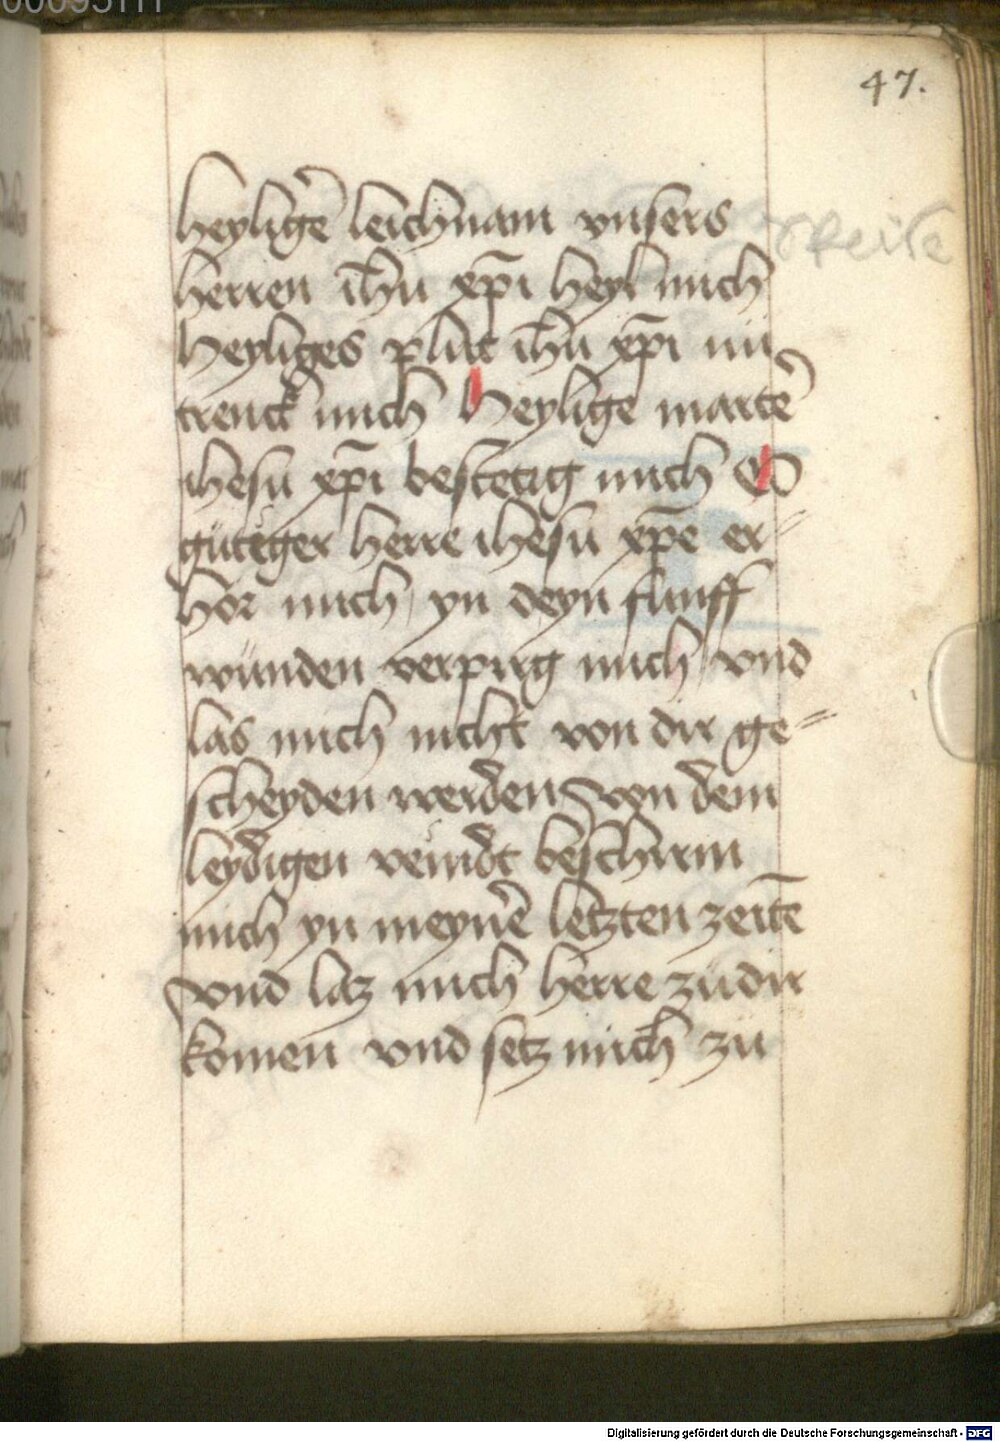 47.
heyligē leichnam vnsers
herren ih̄u xp̄i heyl mich
heyliges plut ih̄u xp̄i nū
trenck mich Heylige marter
ihesu xp̄i bestetig mich O
gutiger herre ihesu xp̄e er=
hor mich yn deyn funff
wunden verpirg mich vnd
las mich nicht von dir ge=
scheyden werden von dem
leydigen veindt beschirm
mich yn meynē letzten zeitē
vnd laz mich herre zu dir
komen vnd setz mich zu
Digitalisierung gefördert durch die Deutsche Forschungsgemeinschaft - DFG